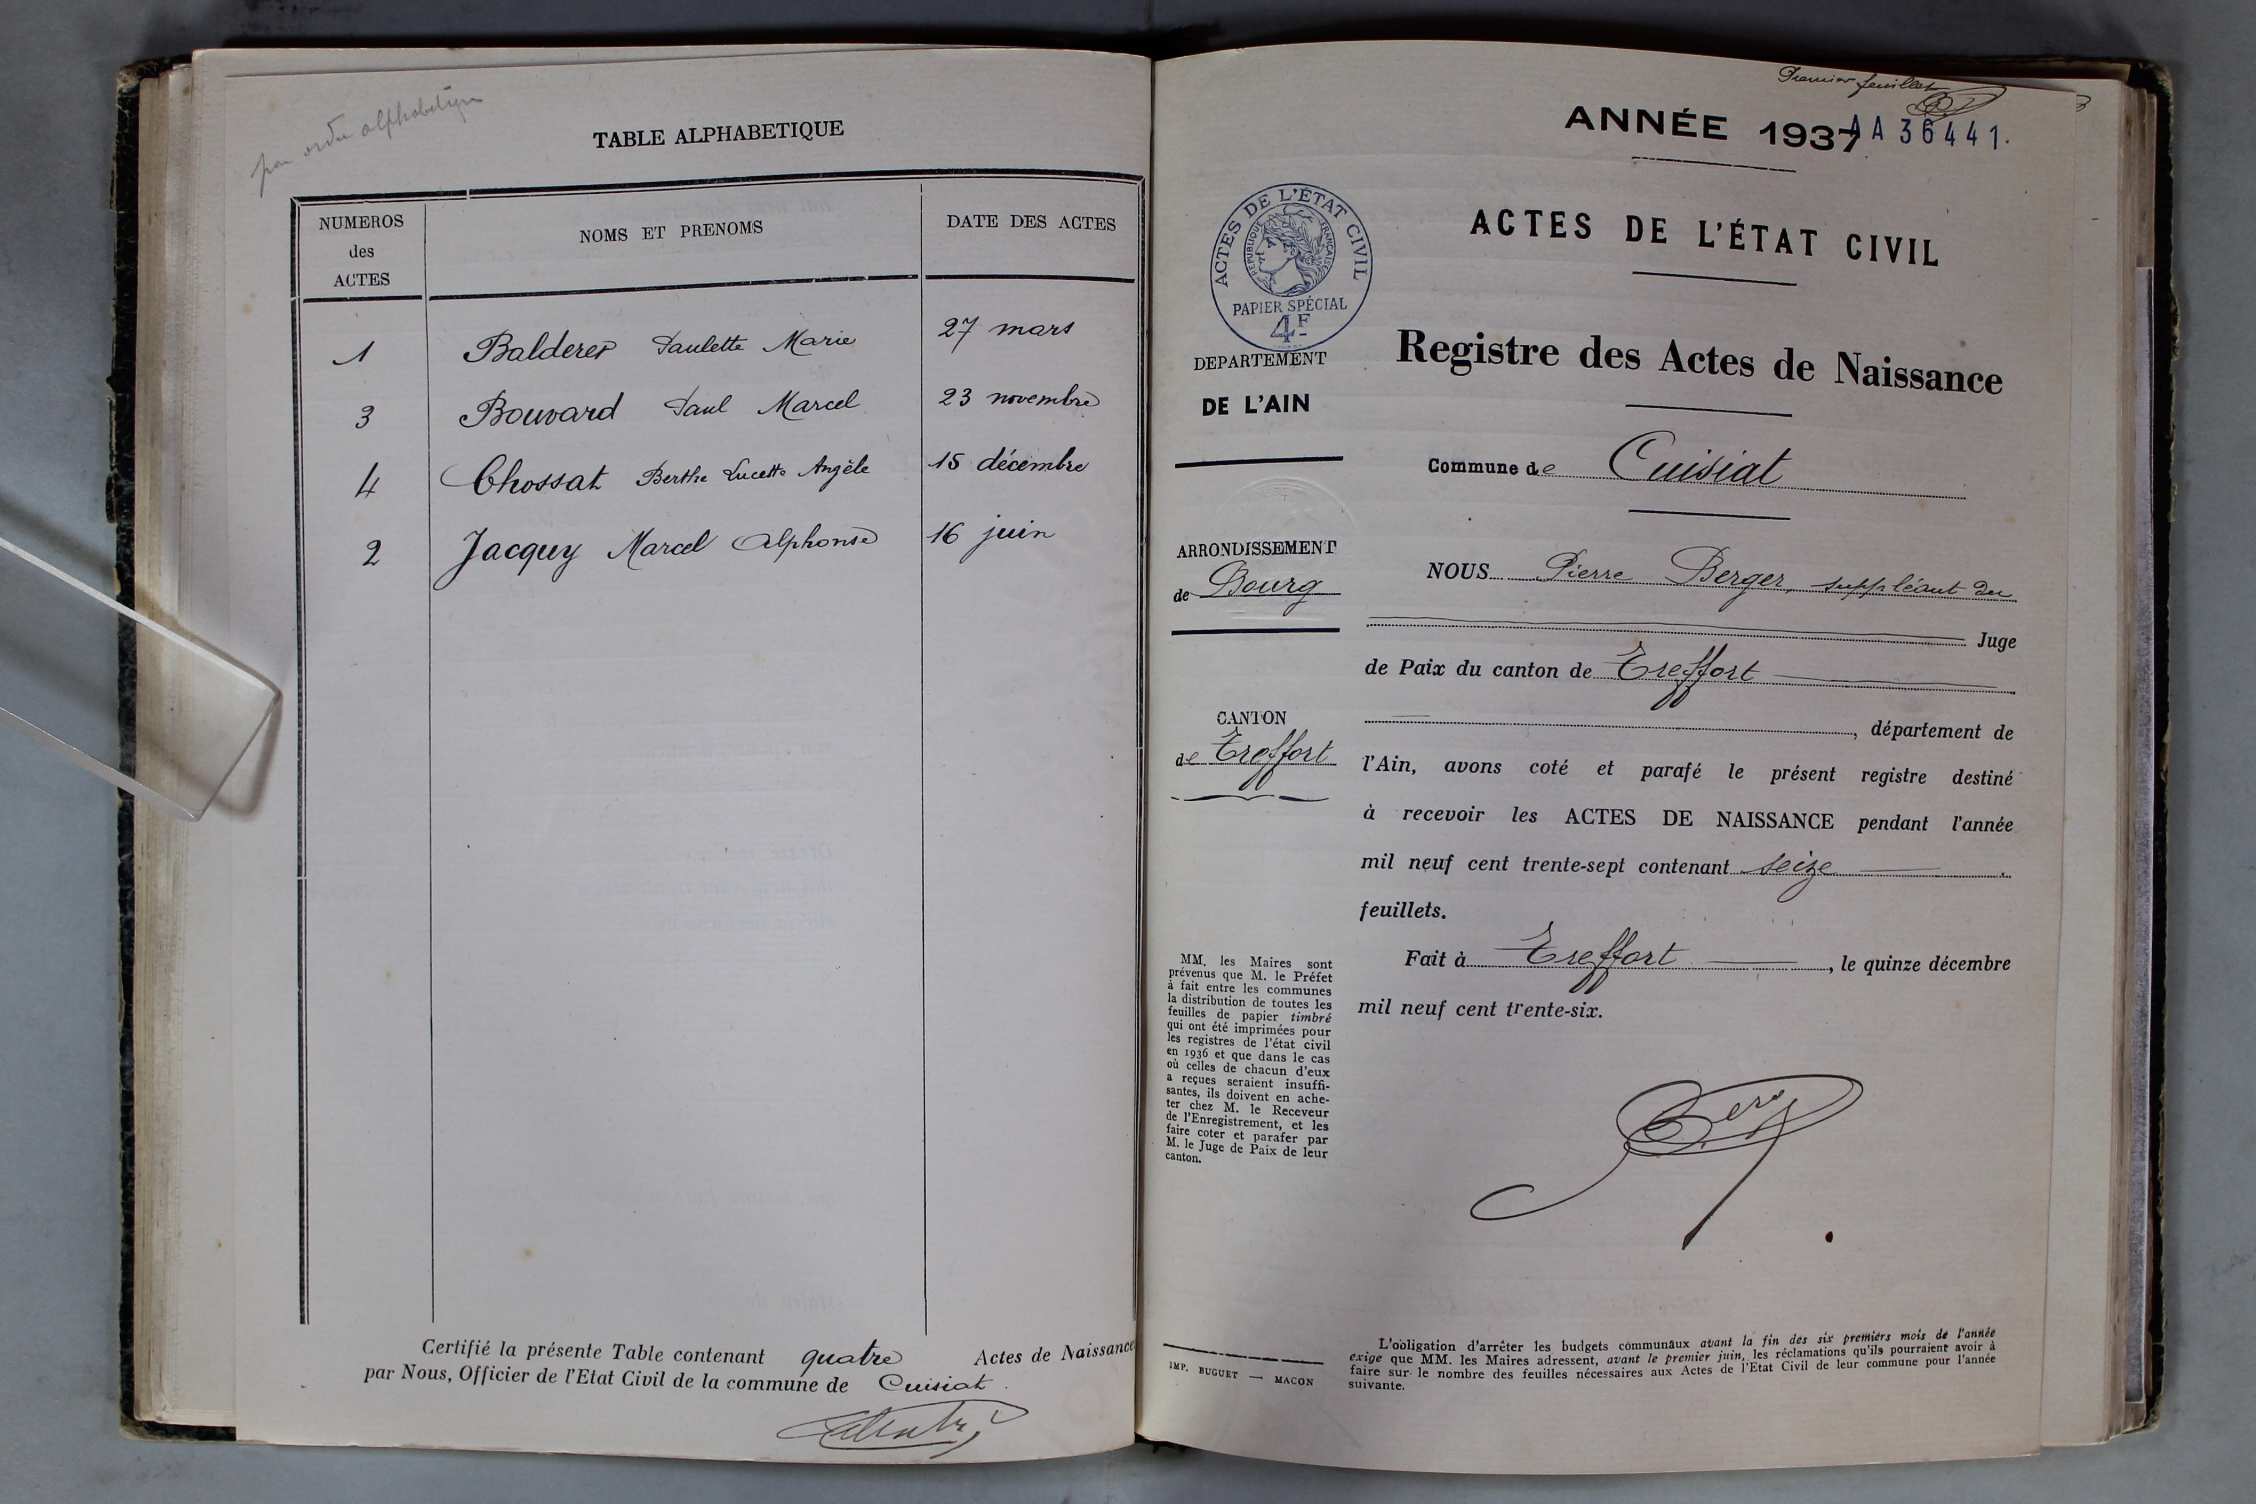 par ordre alphabétique
TABLE ALPHABETIQUE
NUMEROS
des
ACTES
NOMS ET PRENOMS
DATE DES ACTES
1 Balderer Paulette Marie 27 mars
3 Bouvard Paul Marcel 23 novembre
4 Chossat Berthe Lucette Angèle 15 décembre
2 Jacquy Marcel Alphonse 16 juin
Certifié la présente Table contenant quatre Actes de Naissance
par Nous, Officier de l'Etat Civil de la commune de Cuisiat.
Premier feuillet
ANNÉE 1937
AA 36441.
ACTES DE L'ÉTAT CIVIL
ACTES DE L'ÉTAT CIVIL
RÉPUBLIQUE FRANÇAISE
PAPIER SPÉCIAL
4F
DEPARTEMENT
DE L'AIN
ARRONDISSEMENT
de Bourg
CANTON
de Treffort
MM. les Maires sont
prévenus que M. le Préfet
à fait entre les communes
la distribution de toutes les
feuilles de papier timbré
qui ont été imprimées pour
les registres de l'état civil
en 1936 et que dans le cas
où celles de chacun d'eux
a reçues seraient insuffi-
santes, ils doivent en ache-
ter chez M. le Receveur
de l'Enregistrement, et les
faire coter et parafer par
M. le Juge de Paix de leur
canton.
IMP. BUGUET — MACON
Registre des Actes de Naissance
Commune de Cuisiat
NOUS Pierre Berger, suppléant du
Juge
de Paix du canton de Treffort
, département de
l'Ain, avons coté et parafé le présent registre destiné
à recevoir les ACTES DE NAISSANCE pendant l'année
mil neuf cent trente-sept contenant seize
feuillets.
Fait à Treffort, le quinze décembre
mil neuf cent trente-six.
L'obligation d'arrêter les budgets communaux avant la fin des six premiers mois de l'année
exige que MM. les Maires adressent, avant le premier juin, les réclamations qu'ils pourraient avoir à
faire sur le nombre des feuilles nécessaires aux Actes de l'Etat Civil de leur commune pour l'année
suivante.